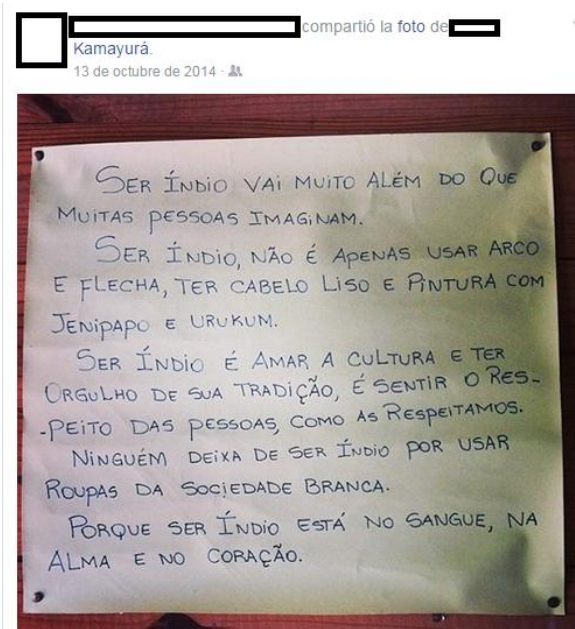 compartió la foto de
Kamayurá.
13 de octubre de 2014 ·
SER ÍNDIO VAI MUITO ALÉM DO QUE
MUITAS PESSOAS IMAGINAM.
SER ÍNDIO, NÃO É APENAS USAR ARCO
E FLECHA, TER CABELO LISO E PINTURA COM
JENIPAPO E URUKUM.
SER ÍNDIO É AMAR A CULTURA E TER
ORGULHO DE SUA TRADIÇÃO, É SENTIR O RES-
-PEITO DAS PESSOAS, COMO AS RESPEITAMOS.
NINGUÉM DEIXA DE SER ÍNDIO POR USAR
ROUPAS DA SOCIEDADE BRANCA.
PORQUE SER ÍNDIO ESTÁ NO SANGUE, NA
ALMA E NO CORAÇÃO.